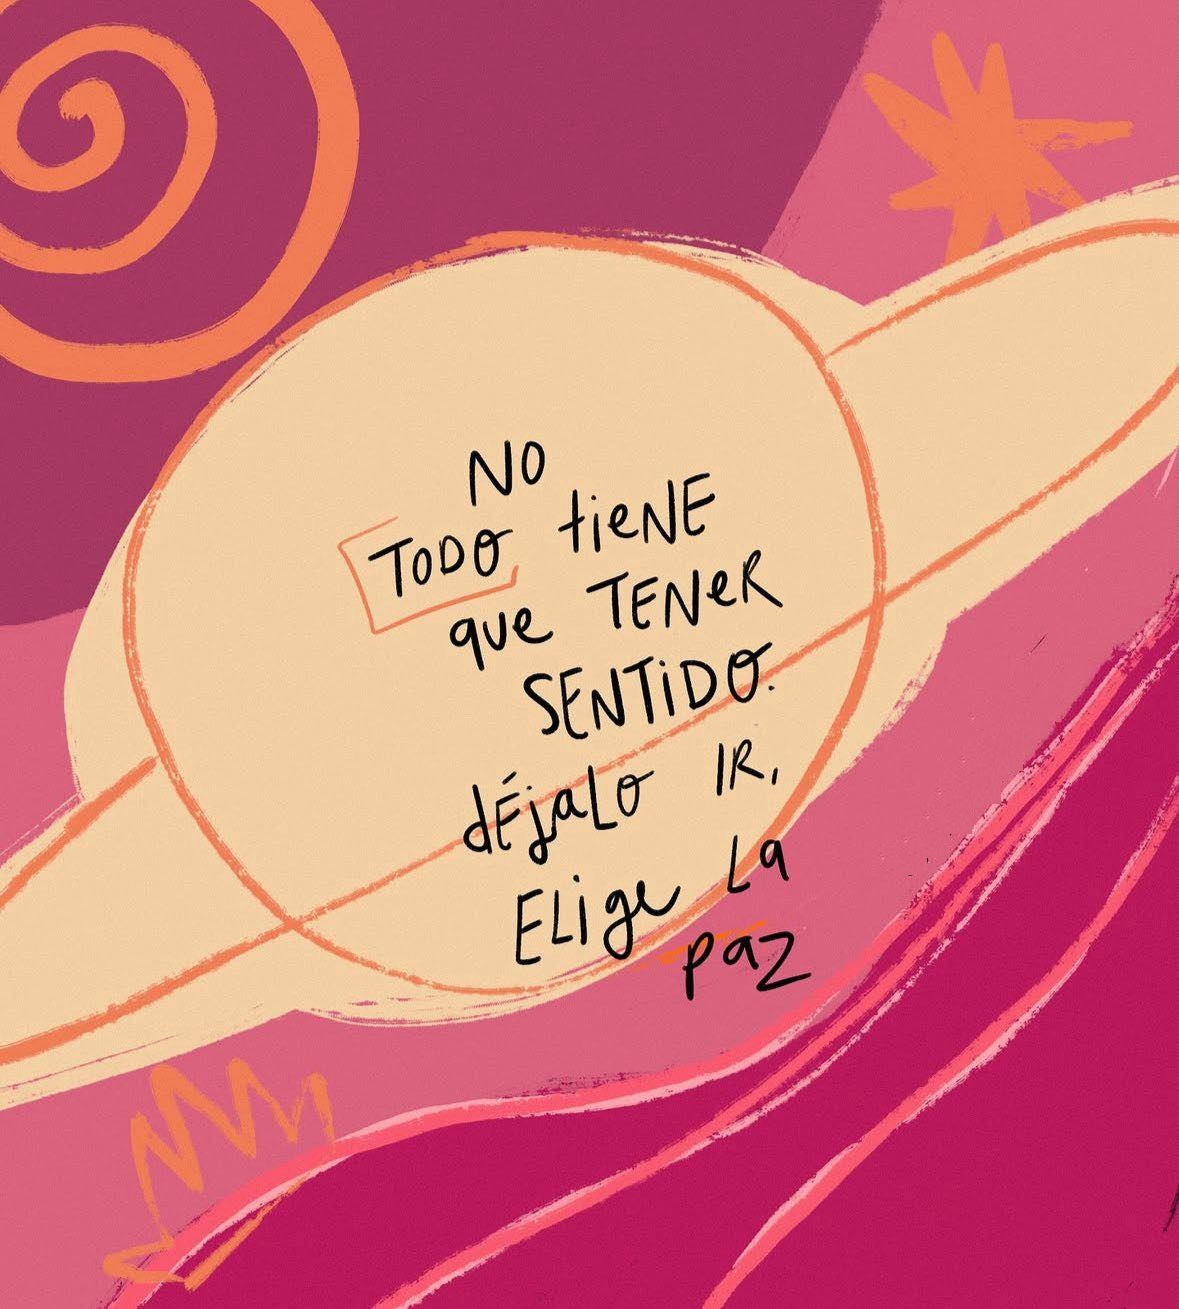 NO
TODO tieNE
que TENeR
SENTiDO.
dÉjaLo IR,
ELige La
paz